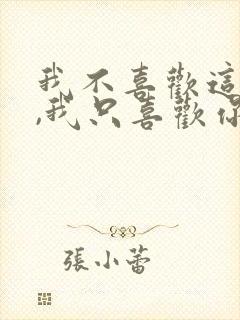 我不喜歡這
,我只喜歡你
張小蕾